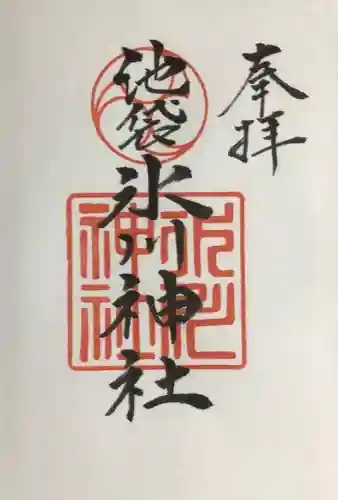 奉拝
池袋氷川神社
氷川
神社